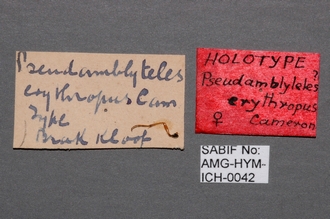 Pseudamblyteles
erythropus Cam
Type
Brak Kloof
HOLOTYPE ?
Pseudamblyteles
erythropus
♀ Cameron
SABIF No:
AMG-HYM-
ICH-0042